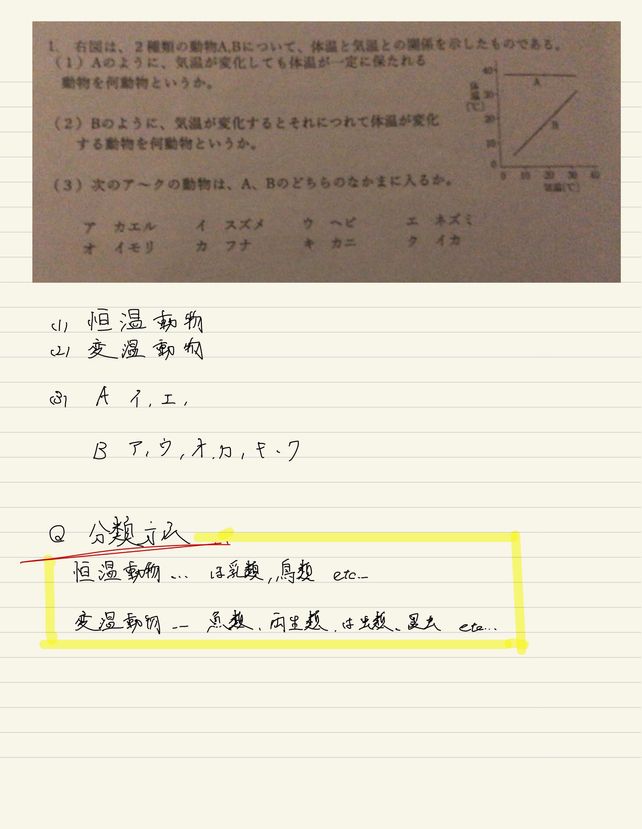 1. 右図は、2種類の動物A,Bについて、体温と気温との関係を示したものである。
(1) Aのように、気温が変化しても体温が一定に保たれる
動物を何動物というか。
(2) Bのように、気温が変化するとそれにつれて体温が変化
する動物を何動物というか。
(3) 次のア〜クの動物は、A、Bのどちらのなかまに入るか。
ア カエル イ スズメ ウ ヘビ エ ネズミ
オ イモリ カ フナ キ カニ ク イカ
体温(℃)
40
30
20
10
0
A
B
0 10 20 30 40
気温(℃)
(1) 恒温動物
(2) 変温動物
(3) A イ, エ,
B ア, ウ, オ, カ, キ, ク
Q 分類方法
恒温動物… ほ乳類, 鳥類 etc…
変温動物 … 魚類、両生類、は虫類、昆虫 etc…